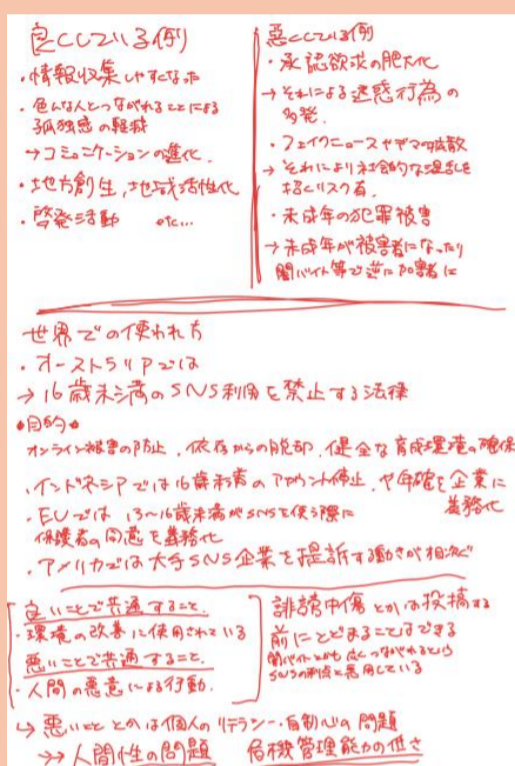 良くしている例
・情報収集しやすくなった
・色んな人とつながれることによる
孤独感の軽減
→コミュニケーションの進化
・地方創生,地域活性化
・啓発活動 etc...
悪くしている例
・承認欲求の肥大化
→それによる迷惑行為の
多発.
・フェイクニュースやデマの拡散
→それにより社会的な混乱を
招くリスク有.
・未成年の犯罪被害
→未成年が被害者になったり
闇バイト等で逆に加害者に
世界での使われ方
・オーストラリアでは
→16歳未満のSNS利用を禁止する法律
・目的・
オンライン被害の防止,依存からの脱却,健全な育成環境の確保
・インドネシアでは16歳未満のアカウント停止,や年確を企業に
義務化
・EUでは 13〜16歳未満がSNSを使う際に
保護者の同意を義務化
・アメリカでは大手SNS企業を提訴する動きが相次ぐ
良いことで共通すること.
・環境の改善に使用されている
悪いことで共通すること.
・人間の悪意による行動.
誹謗中傷とかは投稿する
前にとどまることはできる
闇バイトとかも広くつながれるという
SNSの利点を悪用している
↳悪いこととかは個人のリテラシー・自制心の問題
→→人間性の問題 危機管理能力の低さ